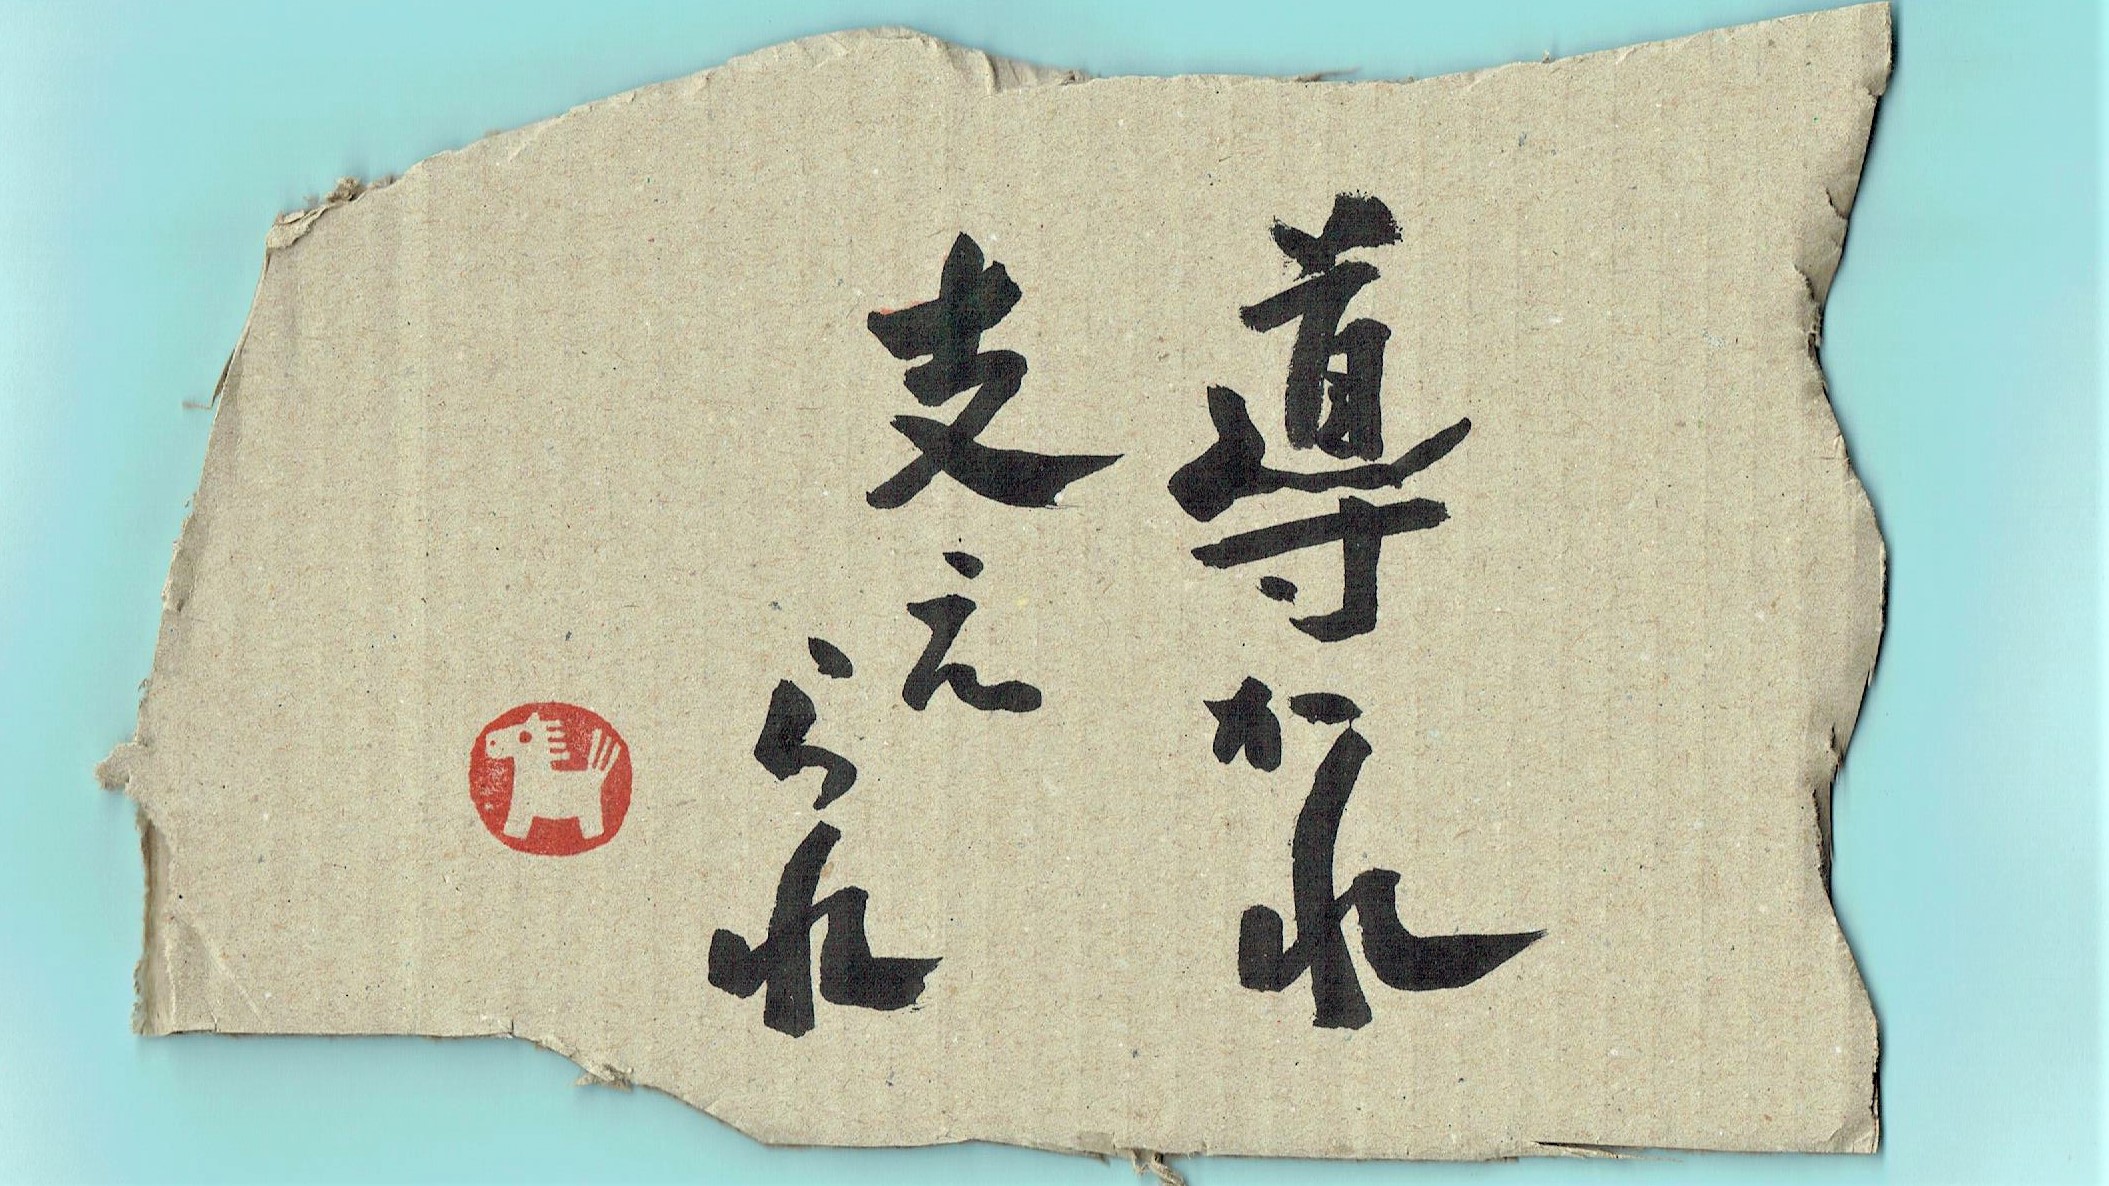 導かれ
支えられ